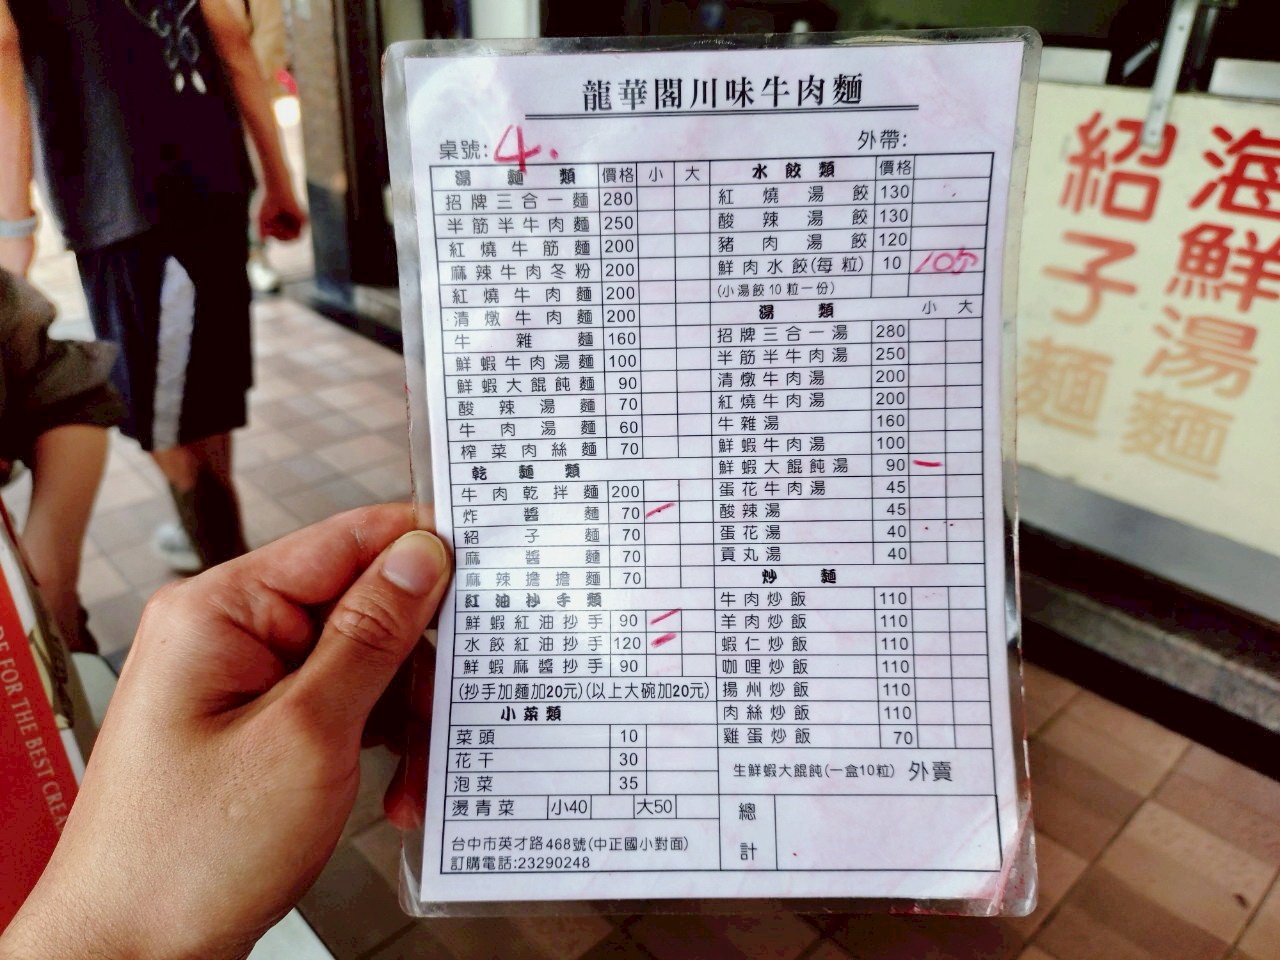 龍華閣川味牛肉麵
桌號: 4.
外帶:
湯麵類 價格 小 大
招牌三合一麵 280
半筋半牛肉麵 250
紅燒牛筋麵 200
麻辣牛肉冬粉 200
紅燒牛肉麵 200
清燉牛肉麵 200
牛雜麵 160
鮮蝦牛肉湯麵 100
鮮蝦大餛飩麵 90
酸辣湯麵 70
牛肉湯麵 60
榨菜肉絲麵 70
乾麵類
牛肉乾拌麵 200
炸醬麵 70
紹子麵 70
麻醬麵 70
麻辣擔擔麵 70
紅油抄手類
鮮蝦紅油抄手 90
水餃紅油抄手 120
鮮蝦麻醬抄手 90
(抄手加麵加20元)(以上大碗加20元)
小菜類
菜頭 10
花干 30
泡菜 35
燙青菜 小40 大50
台中市英才路468號(中正國小對面)
訂購電話:23290248
水餃類 價格
紅燒湯餃 130
酸辣湯餃 130
豬肉湯餃 120
鮮肉水餃(每粒) 10
(小湯餃10粒一份)
湯類 小 大
招牌三合一湯 280
半筋半牛肉湯 250
清燉牛肉湯 200
紅燒牛肉湯 200
牛雜湯 160
鮮蝦牛肉湯 100
鮮蝦大餛飩湯 90
蛋花牛肉湯 45
酸辣湯 45
蛋花湯 40
貢丸湯 40
炒麵
牛肉炒飯 110
羊肉炒飯 110
蝦仁炒飯 110
咖哩炒飯 110
揚州炒飯 110
肉絲炒飯 110
雞蛋炒飯 70
生鮮蝦大餛飩(一盒10粒) 外賣
總計
海鮮湯麵
紹子麵
FOR THE BEST